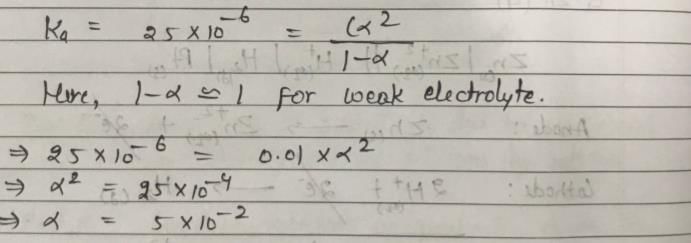 Ka = 25 × 10⁻⁶ = Cα² / 1-α
Here, 1-α ≃ 1 for weak electrolyte.
⇒ 25 × 10⁻⁶ = 0.01 × α²
⇒ α² = 25 × 10⁻⁴
⇒ α = 5 × 10⁻²